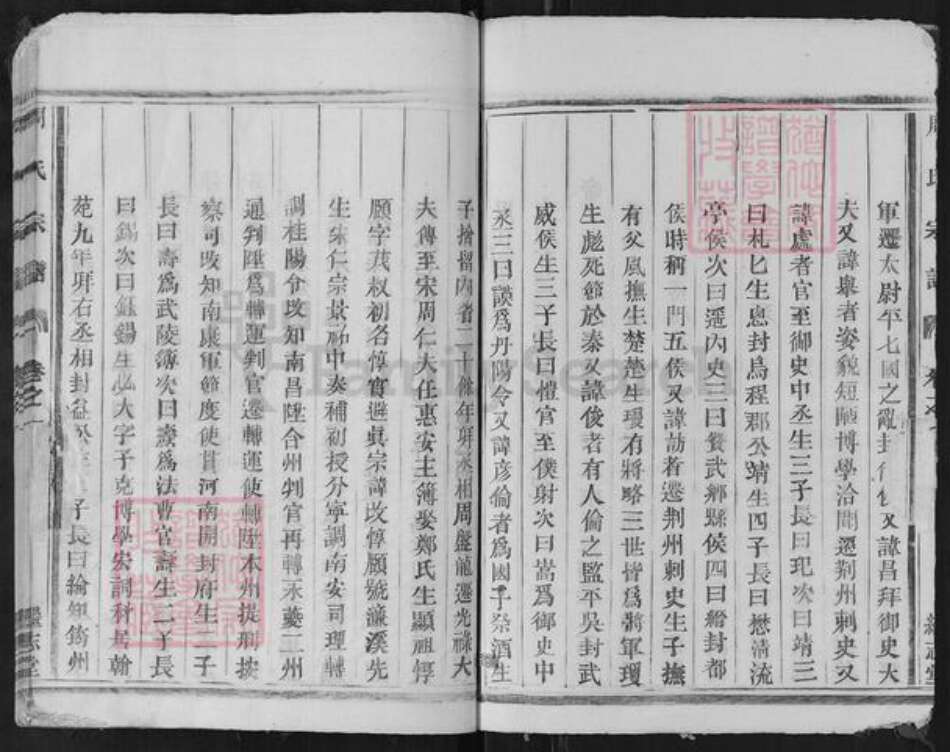 軍遷太尉平七國之亂封 又諱昌拜御史大
夫又諱輿者姿貌短陋博學洽聞遷荆州刺史又
諱處者官至御史中丞生三子長曰玘次曰靖三
曰札玘生恖封烏程郡公靖生四子長曰懋清流
亭侯次曰遥內史三曰贊武鄉縣侯四曰縉封都
侯時稱一門五侯又諱訪者遷荆州刺史生子撫
有父風撫生楚楚生瓊有將略三世皆爲將軍瓊
生彪死節於秦又諱俊者有人倫之監平吳封武
威侯生三子長曰愷官至僕射次曰嵩爲御史中
丞三曰謨爲丹陽令又諱彥倫者爲國子祭酒生
子捨留內省二十餘年 丞相周盤龍遷光祿大
夫傳至宋周仁大任惠安主簿娶鄭氏生顯祖惇
願字茂叔初名惇實避眞宗諱攺惇願號濂溪先
生宋仁宗景祐中奏補初授分寧調南安司理轉
調桂陽令攺知南昌陞合州判官再轉永夔二州
通判陞爲轉運判官遷轉運使轉陞本州提刑按
察司攺知南康軍節度使 河南開封府生二子
長曰壽爲武陵簿次曰燾爲法曹官壽生二子長
曰錫次曰鈺錫生必大字子克博學宏詞科居翰
苑九年 右丞相封益公 子長曰綸知筠州
周氏宗譜
卷之一
繼志堂
Family Search